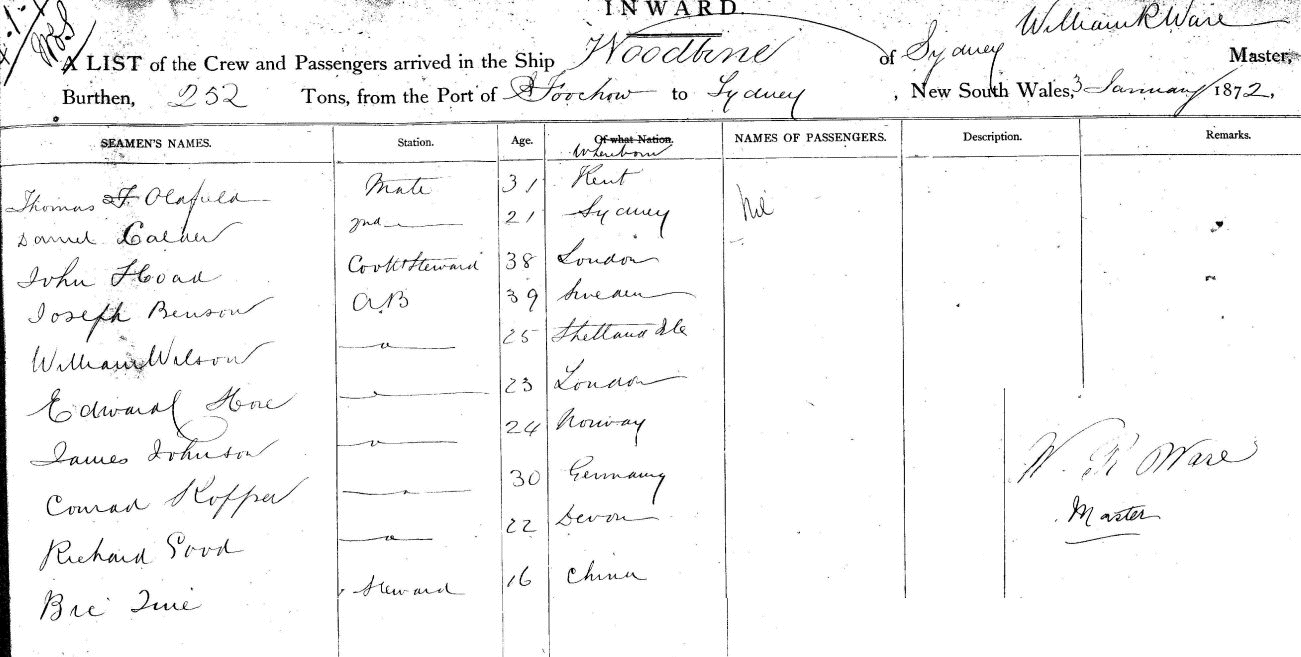 INWARD.
William R Ware
A LIST of the Crew and Passengers arrived in the Ship Woodbine of Sydney Master,
Burthen, 252 Tons, from the Port of Foochow to Sydney , New South Wales, 3 January 1872,
SEAMEN'S NAMES. Station. Age. Of what Nation. NAMES OF PASSENGERS. Description. Remarks.
Where born
Thomas F Oldfield Mate 31 Kent Nil
Daniel Calder 2nd 21 Sydney
John Hoad Cook & Steward 38 London
Joseph Benson AB 39 Sweden
William Wilson 25 Shetland Isle
Edward Hore 23 London
James Johnson 24 Norway
Conrad Kopper 30 Germany
Richard Good 22 Devon
Steward 16 China
W. R Ware
Master